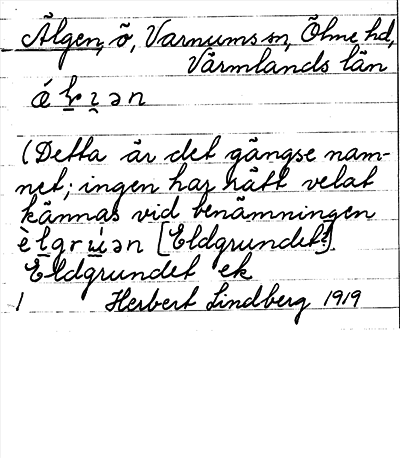 Älgen, ö, Varnums sn, Ölme hd,
Värmlands län
(Detta är det gängse nam-
net; ingen har nått velat
kännas vid benämningen
[Eldgrundet!].
Eldgrundet ek
1 Herbert Lindberg 1919